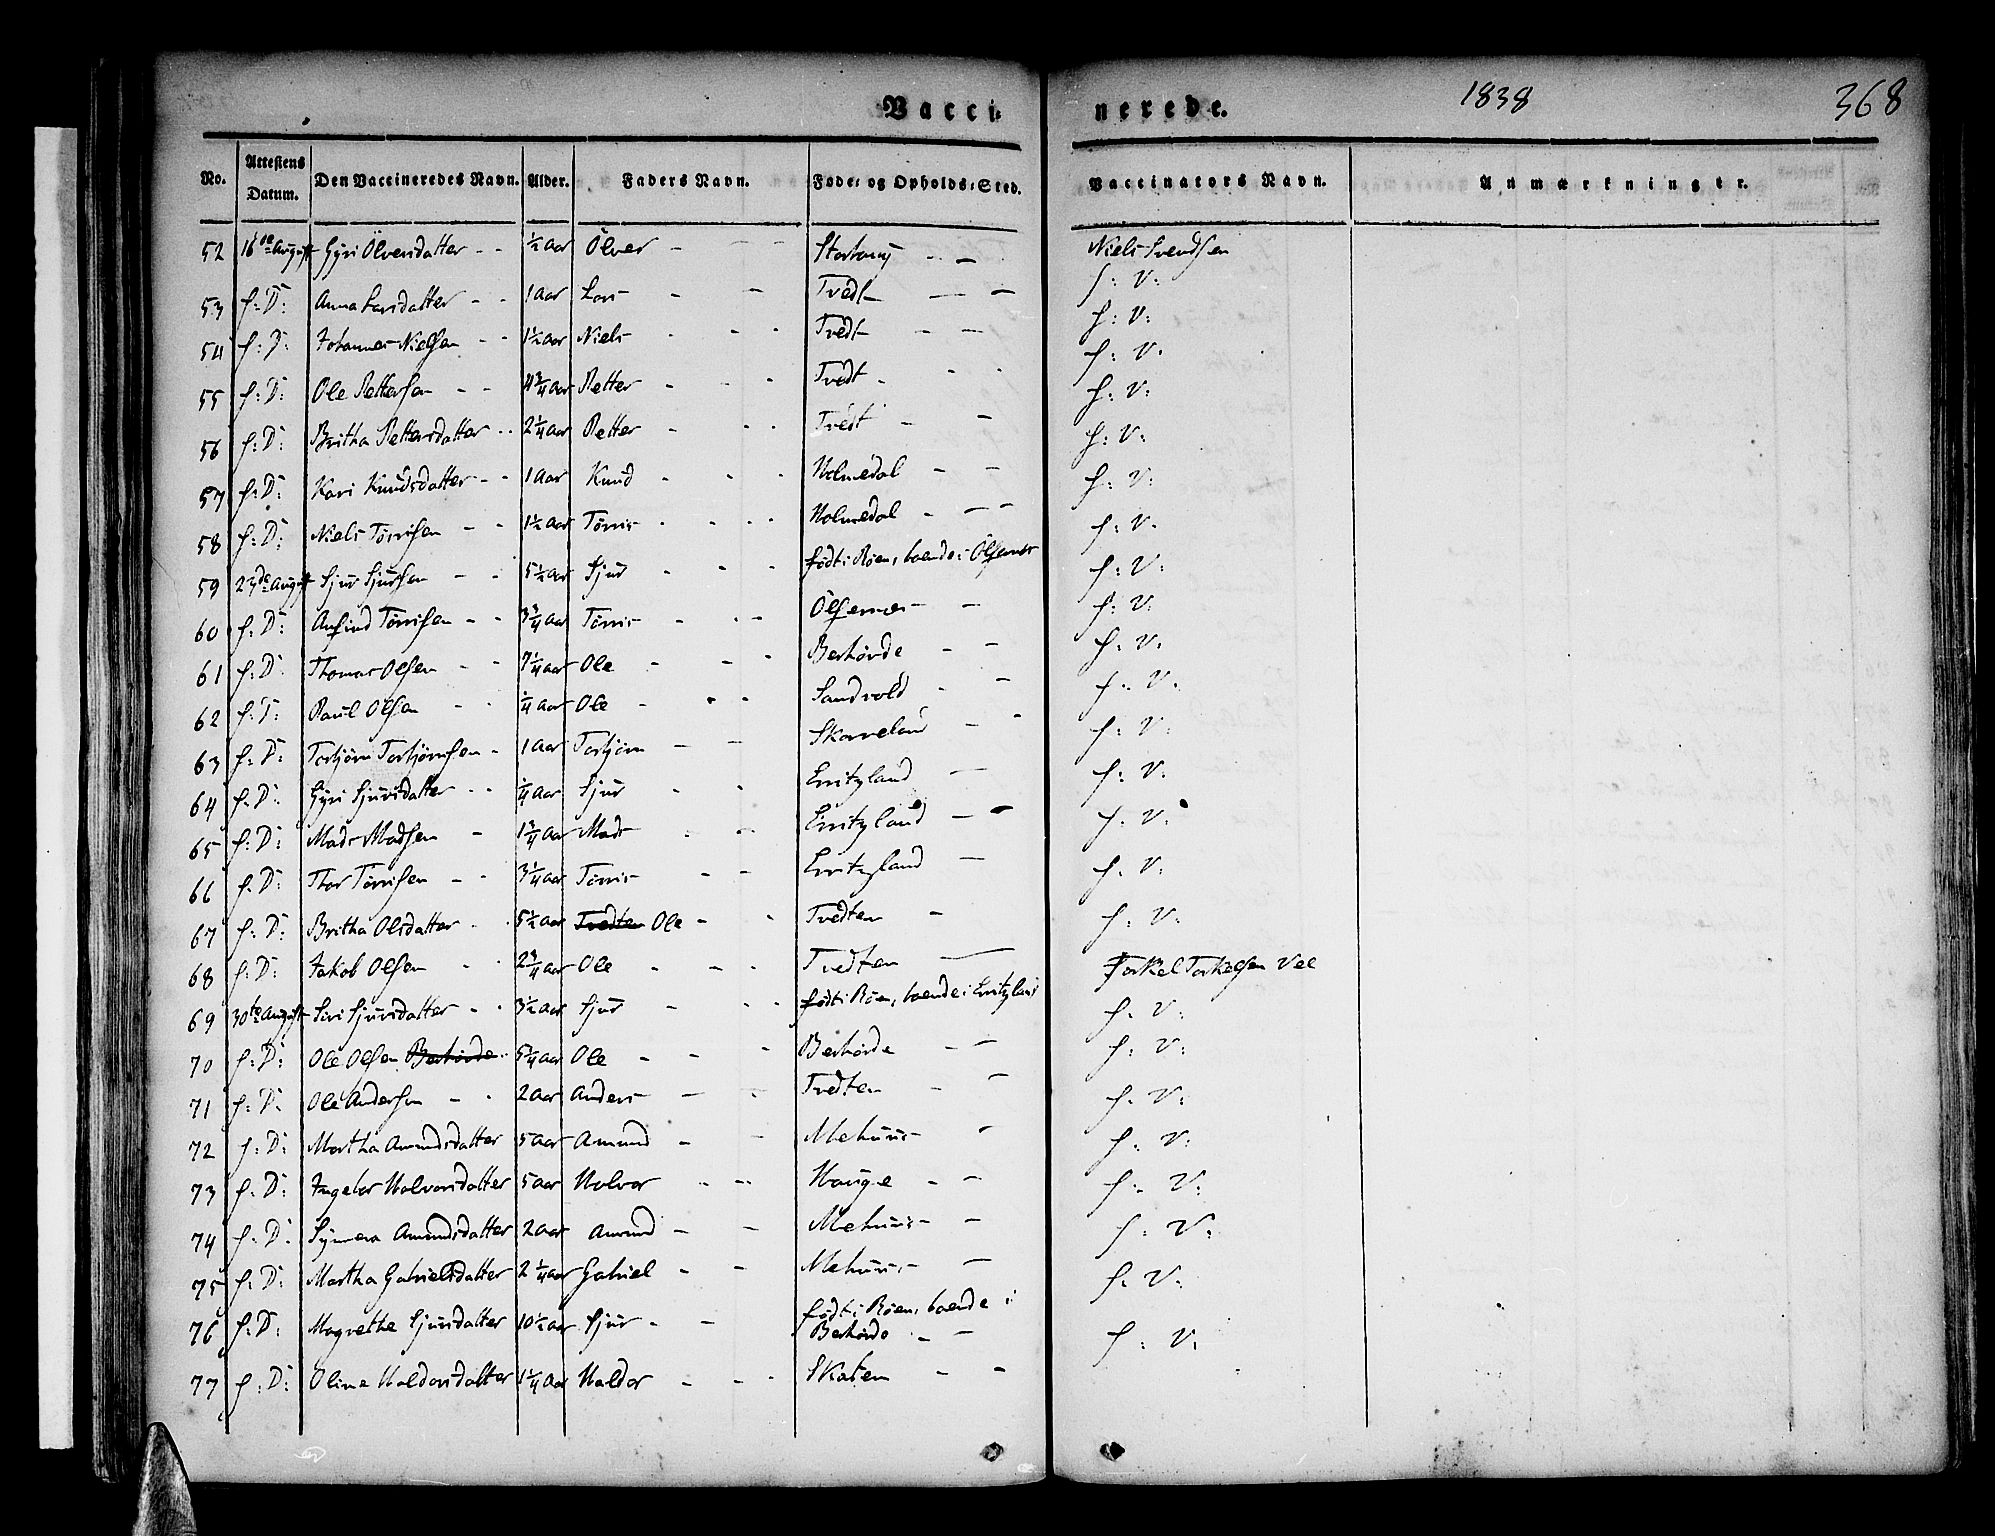 Vacci-
nerede.
1838
368
No. Attestens Datum. Den Vaccineredes Navn. Alder. Faders Navn. Føde- og Opholds-Sted. Vaccinators Navn. Anmærkninger.
52 16de August Gyri Ölversdatter - - ½ Aar Ölver - - - - - Niels Svendsen
53 s: D: Anna Larsdatter - - 1 Aar Lars - - Tvedt - - s: V:
54 s: D: Johannes Nielsen - - 1½ Aar Niels - - - Tvedt - - s: V:
55 s: D: Ole Pettersen - - 4¾ Aar Petter - - - Tvedt - - - s: V:
56 s: D: Britha Pettersdatter - - 2¼ Aar Petter - - - Tvedt - - s: V:
57 s: D: Kari Knudsdatter - - 1 Aar Knud - - - Holmedal - - s: V:
58 s: D: Niels Tørrisen - - 1½ Aar Tørris - - - - Holmedal - - - s: V:
59 23de August Sjur Sjursen - - 5½ Aar Sjur - - - født i Røen, boende i Ölfernes s: V:
60 s: D: Anfind Tørrisen - - 3¾ Aar Tørris - - - Ölfernes - - s: V:
61 s: D: Thomas Olsen - - 7¼ Aar Ole - - - Berhövde - - s: V:
62 s: D: Paul Olsen - - ¼ Aar Ole - - - Sandvold - - s: V:
63 s: D: Torbjörn Torbjörnsen - 1 Aar Torbjörn - - Skaveland - - s: V:
64 s: D: Gyri Sjursdatter - - ¼ Aar Sjur - - Enitzland - s: V:
65 s: D: Mads Madsen - 1¾ Aar Mads - - Enitzland - - s: V:
66 s: D: Thor Tørrisen - - 3¼ Aar Tørris - - Enitzland - s: V:
67 s: D: Britha Olsdatter - - 5½ Aar Tvedten Ole - - Tvedten - s: V:
68 s: D: Jakob Olsen - - 2¾ Aar Ole - - - Tvedten - s: V:
69 30te August Siri Sjursdatter - - 3½ Aar Sjur - - - født i Røen, boende i Enitzland Torkel Torkelsen Vee
70 s: D: Ole Olsen Berhövde - 5¼ Aar Ole - - - Berhövde - - s: V:
71 s: D: Ole Andersen - - 2 Aar Anders - - Tvedten - - s: V:
72 s: D: Martha Amundsdatter 5 Aar Amund - - Mehuus - - s: V:
73 s: D: Ingebor Halvorsdatter 5 Aar Halvor - - Hauge - - s: V:
74 s: D: Synneva Amundsdatter 2 Aar Amund - - Mehuus - - s: V:
75 s: D: Martha Gabrielsdatter 2¼ Aar Gabriel - - Mehuus - - s: V:
76 s: D: Magrethe Sjursdatter 10½ Aar Sjur - - født i Røen, boende i
Berhövde - - s: V:
77 s: D: Oline Haldorsdatter 1¼ Aar Haldor - - - Skaten - - s: V: